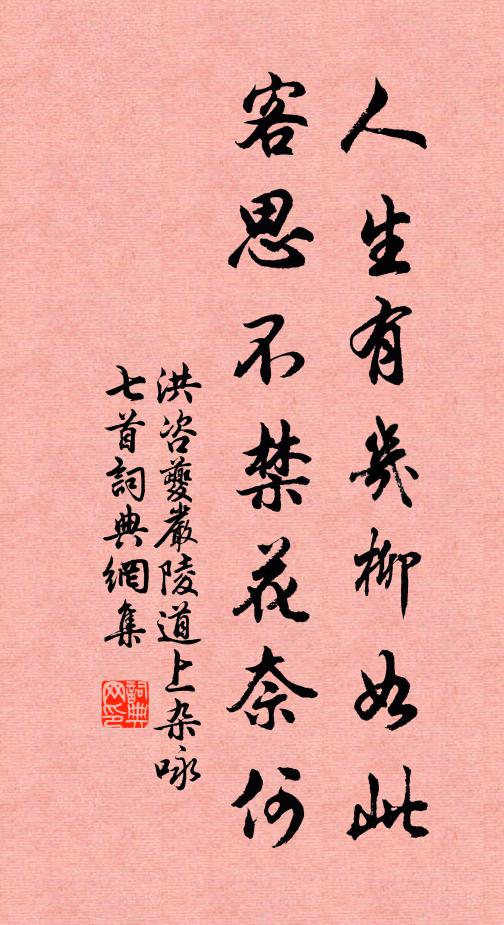 人生有几柳如此
客思不禁花奈何
洪咨夔嚴陵道上杂咏
七首詞典網集
詞典
网印